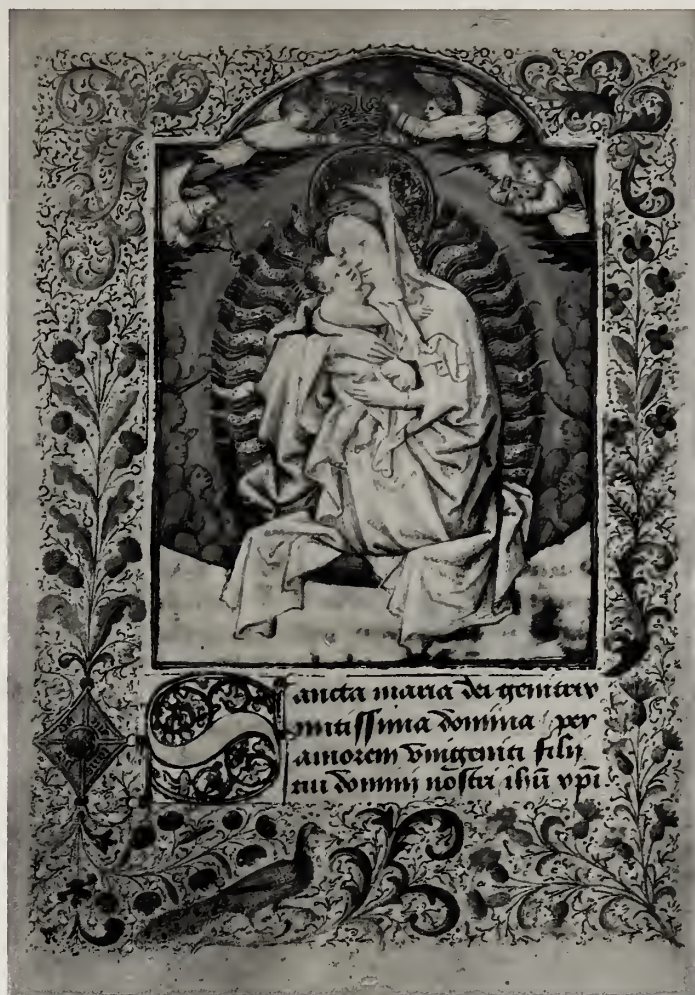 Sancta maria dei genitrix
mitissima domina per
amorem vnigeniti filii
tui domini nostri ihū xpi